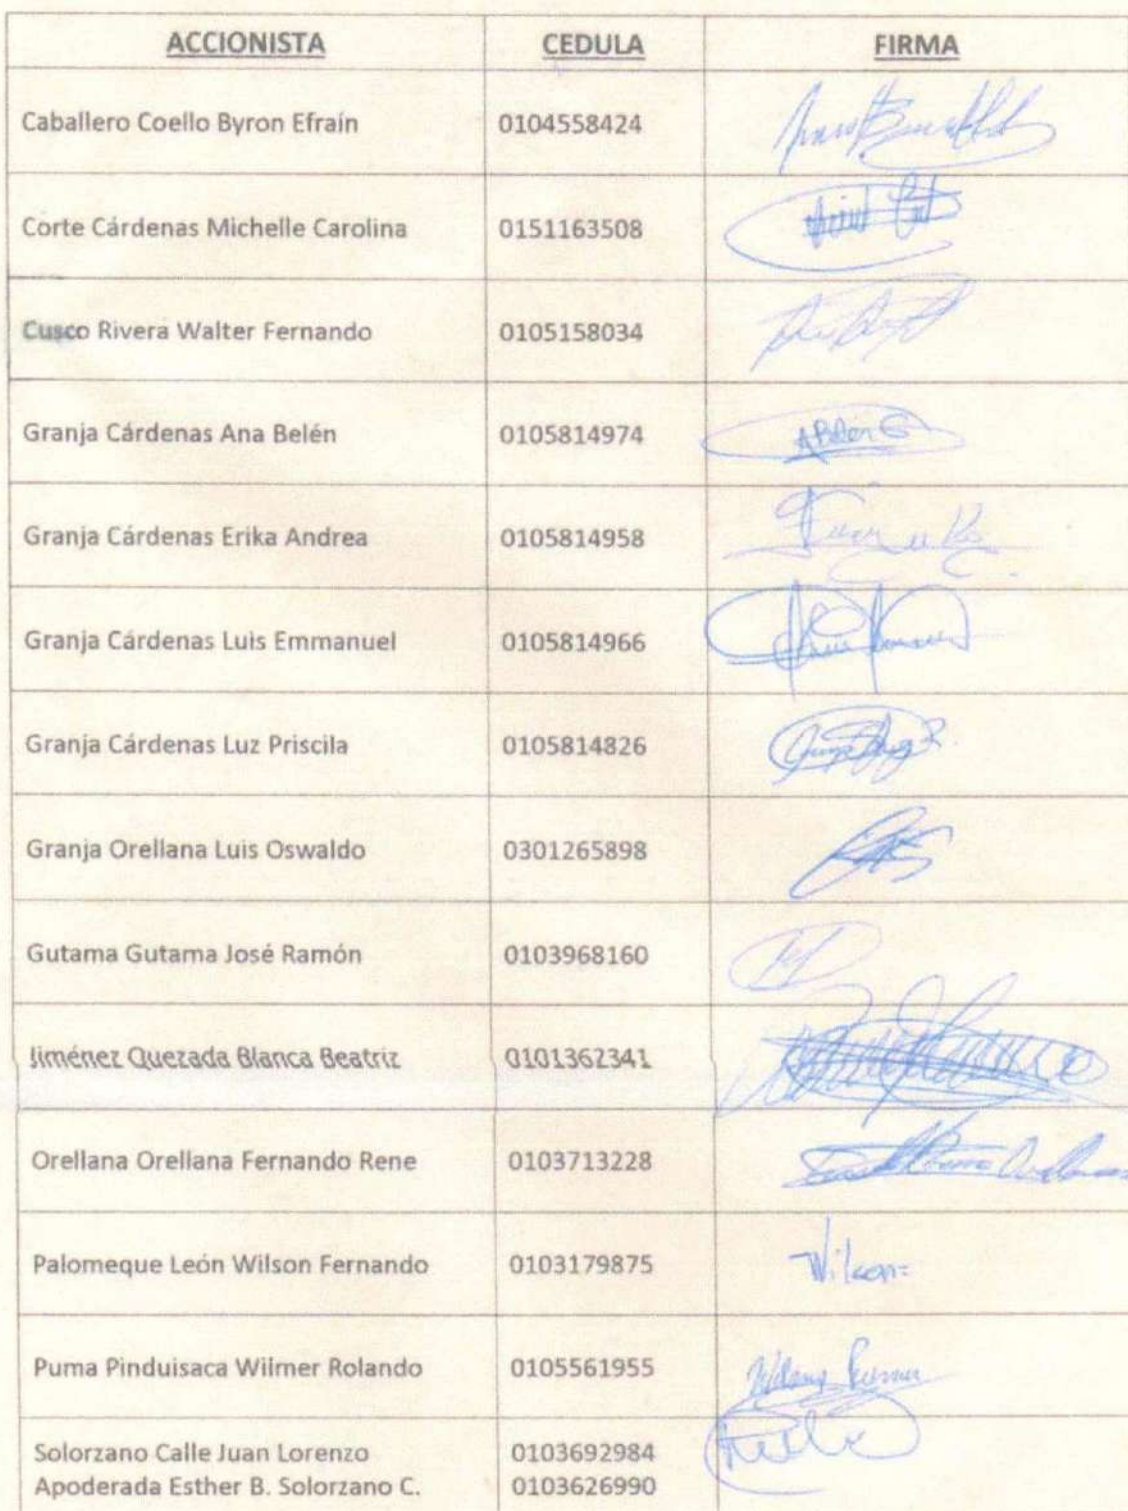 ACCIONISTA CEDULA FIRMA
Caballero Coello Byron Efraín 0104558424
Corte Cárdenas Michelle Carolina 0151163508
Cusco Rivera Walter Fernando 0105158034
Granja Cárdenas Ana Belén 0105814974 ABelén G
Granja Cárdenas Erika Andrea 0105814958
Granja Cárdenas Luis Emmanuel 0105814966
Granja Cárdenas Luz Priscila 0105814826
Granja Orellana Luis Oswaldo 0301265898
Gutama Gutama José Ramón 0103968160
Jiménez Quezada Blanca Beatriz 0101362341
Orellana Orellana Fernando Rene 0103713228
Palomeque León Wilson Fernando 0103179875 Wilson
Puma Pinduisaca Wilmer Rolando 0105561955
Solorzano Calle Juan Lorenzo 0103692984
Apoderada Esther B. Solorzano C. 0103626990